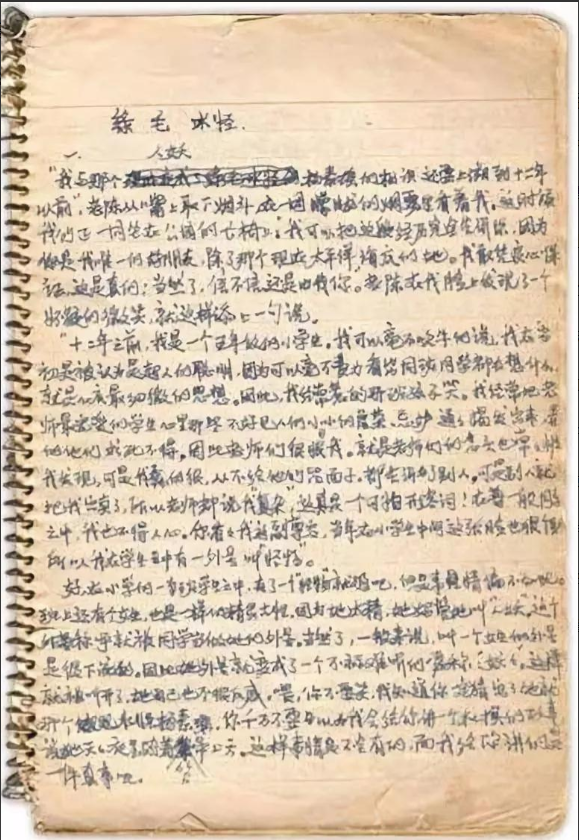 绿毛水怪.
一. 人妖
"我与那个杨素瑶的相识还要上溯到十二年
以前"老陈从嘴上取下烟斗,在一团朦胧的烟雾里看着我。这时候
我们正一同坐在公园的长椅上。"我可以把这段经历完全告诉你,因为
你是我唯一的朋友,除了那个现在太平洋海底的她。我敢凭良心保
证,这是真的;当然了,信不信还是由我你。老陈在我脸上发现了一个
怀疑的微笑,就这样添上一句说。
"十二年之前,我是一个五年级的小学生。我可以毫不吹牛的说,我在当
初是被认为是超人的聪明,因为可以毫不费力看出同班同学都在想什么,
就是心底最细微的思想。因此,我经常惹的那班孩子笑。我经常把老
师最宠爱的学生心里那些不好见人的小小的虚荣、忌妒通通揭发出来,弄
的他们求死不得。因此老师们很恨我。就是老师们的念头也常
我发现,可是我蠢的很,从不给他们留面子,都告诉了别人。可是别人就
把我出卖了,所以老师都说我"复杂",这真是一个可怕的形容词!在一般同学
之中,我也不得人心。你看看我这副尊容,当年在小学生中间这张脸也很
所以我在学生中有一外号叫"怪物"。
好,在小学的一班学生之中,有了一个"怪物"就够了吧,但是事情偏不如此。
班上还有个女生,也是一样的精灵古怪。因为她太精,她妈管她叫"人妖"。这个
称呼就被同学当做她的外号。当然了,一般来说,叫一个女生的外号
是很下流的。因此她外号就变成了一个不算难听的昵称"妖妖"。这样
就被叫开了,她自己也不很反感。喂,你不要笑,我知道你一定猜出了她就
那个水怪杨素瑶,你千万不要以为我会给你讲一个杜撰的故事
说她天天夜里骑着笤帚上天。这样事情是不会有的,而我给你讲的是
一件真事呢。